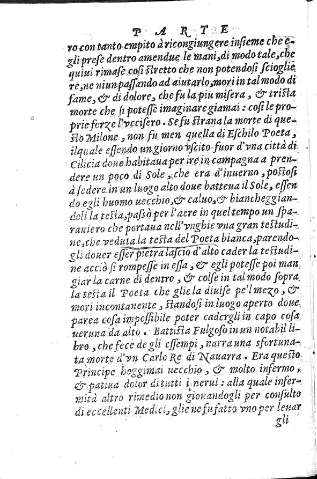 PARTE
ro con tanto empito à ricongiungere insieme che e-
gli prese dentro amendue le mani, di modo tale, che
quiui rimase così stretto che non potendosi scioglie
re, ne niun passando ad aiutarlo, morì in tal modo di
fame, & di dolore, che fu la piu misera, & trista
morte che si potesse imaginare giamai: così le pro-
prie forze l'vccisero. Se fu strana la morte di que-
sto Milone, non fu men quella di Eschilo Poeta,
ilquale essendo un giorno vscito fuor d'vna città di
Cilicia doue habitaua per ire in campagna a pren-
dere un poco di Sole, che era d'inuerno, postosi
à sedere in un luogo alto doue batteua il Sole, essen
do egli huomo uecchio, & caluo, & biancheggian-
doli la testa, passò per l'aere in quel tempo un spa-
rauiero che portaua nell'vnghie vna gran testudi-
ne, che veduta la testa del Poeta bianca, parendo-
gli douer esser pietra lasciò d'alto cader la testudi-
ne acciò si rompesse in essa, & egli potesse poi man
giar la carne di dentro, & cosse in tal modo sopra
la testa il Poeta che glie la diuise pe'l mezo, &
morì incontanente, standosi in luogo aperto doue
parea cosa impossibile poter cadergli in capo cosa
ueruna da alto. Battista Fulgoso in un notabil li-
bro, che fece de gli essempi, narra una sfortuna-
ta morte d'vn Carlo Re di Nauarra. Era questo
Principe hoggimai uecchio, & molto infermo,
& patiua dolor di tutti i nerui: alla quale infer-
mità altro rimedio non giouandogli per consulto
di eccellenti Medici, glie ne fu fatto vno per leuar
gli